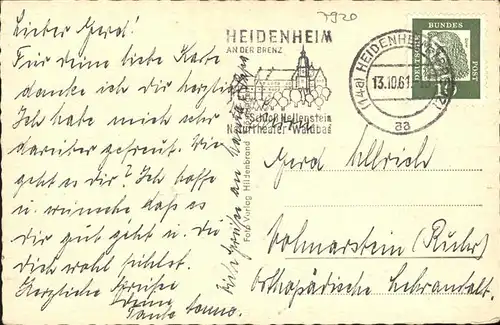 7920
Lieber Gerd!
Für deine liebe Karte
danke ich dir herzlich.
Ich habe mich sehr
darüber gefreut. Wie
geht es dir? Ich hoffe
u. wünsche daß es
dir gut geht u. du
dich wohl fühlst.
Herzliche Grüße
Deine
Tante
HEIDENHEIM
AN DER BRENZ
Schloß Hellenstein
Naturtheater Waldbad
(14a) HEIDENHEIM
13.10.61
aa
DEUTSCHE
BUNDES
POST
Foto Verlag Hildenbrand
Gerd Ullrich
Volmarstein (Ruhr)
Orthopädische Lehranstalt.